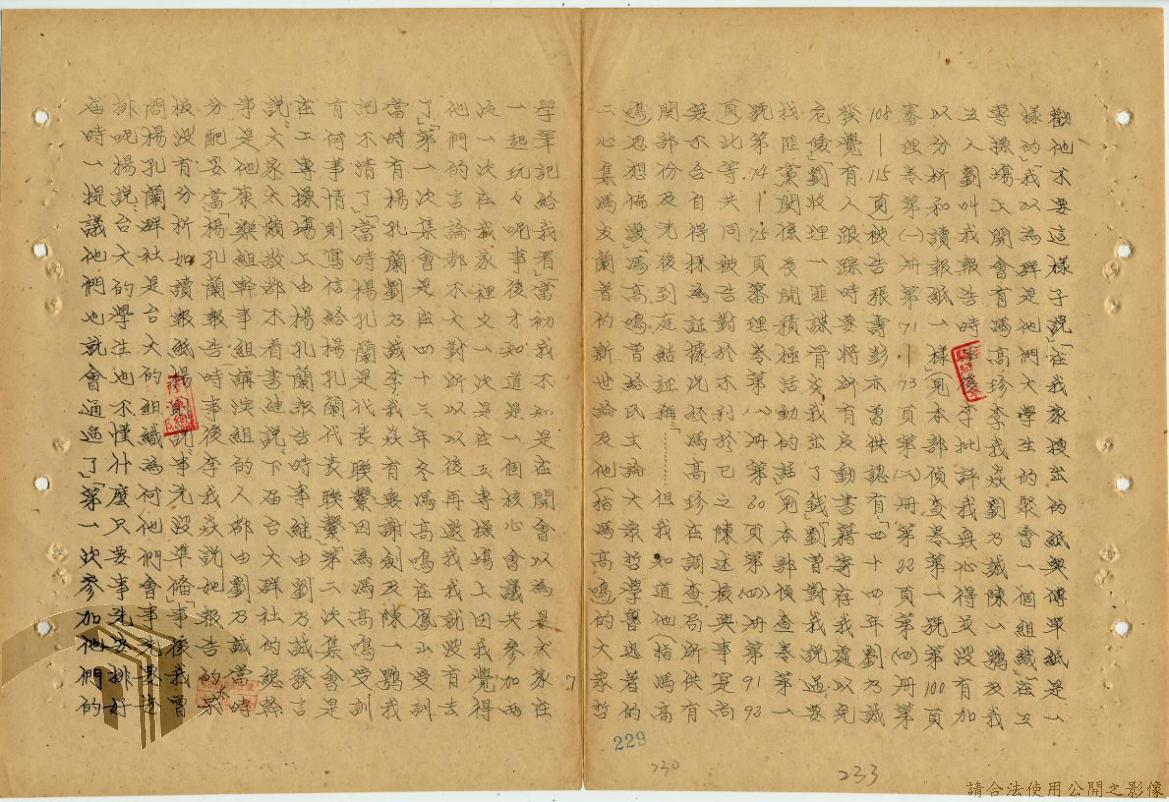 勸他不要這樣子說」「在我家搜出的紙與傳單紙是一
樣的」「我以為群是他們大學生的聚會一個組織」「在工
專操場上開會有馮高珍李我焱劉乃誠陳一鶚及我
五人劉叫我報告時事後李批評我無心得並沒有加
以分析和讀報紙一樣」(見本部偵查卷第一號第100頁
審理卷第(一)冊第71—73頁第(二)冊第22頁第(四)冊第
108—115頁)被告張壽彭亦曾供認有「四十四年劉乃誠
發覺有人跟踪時要將所有反動書籍寄存我處以免
危險」「劉收埋一匪諜骨灰我出了錢」「劉曹對我說過要
找匪黨關係長期積極活動的話」(見本部偵查卷第一
號第74—75頁審理卷第(八)冊第20頁第(四)冊第91 92
頁)此等共同被告對於不利於己之陳述核與事寔尚
無不合自得採為証據況經馮高珍在調查局所供有
関部份及先後到庭結証稱「……但我知道他(指馮高
鳴)思想偏激」「馮高鳴曾給民主論大眾哲學魯迅著的
二心集馮友蘭著的新世論及他(指馮高鳴)的大眾哲
229
230
233
學筆記給我看」「當初我不知是在開會以為是大家在
一起玩々呢事後才知道是一個核心會議共參加兩
次一次在我家裡又一次是在工專操場上因我覺得
他們的言論都不大對所以以後再邀我我就沒有去
了」「第一次集會是在四十三年冬馮高鳴在鳳山受訓
當時有楊孔蘭劉乃誠李我焱有無謝劍及陳一鶚我
記不清了」「當時楊孔蘭是代表聯繫因為馮高鳴受訓
有何事情則寫信給楊孔蘭代表聯繫」「第二次集會是
在工專操場上由楊孔蘭報告時事継由劉乃誠發言
說〝大家太懶散都不看書継說〝下屆台大群社的總幹
事是他康樂組幹事組講演組的人都由劉乃誠當時
分配妥當」「楊孔蘭報告時事後李我焱說她報告的呆
板沒有分析如讀報紙楊則說〝事先沒準備〞事後我曾
問楊孔蘭群社是台大的組織為何他們會事先要安
排呢楊說〝台大的學生也不懂什麼只要事先安排好
屆時一提議他們也就會通過了」「第一次參加他們的
7
請合法使用公開之影像